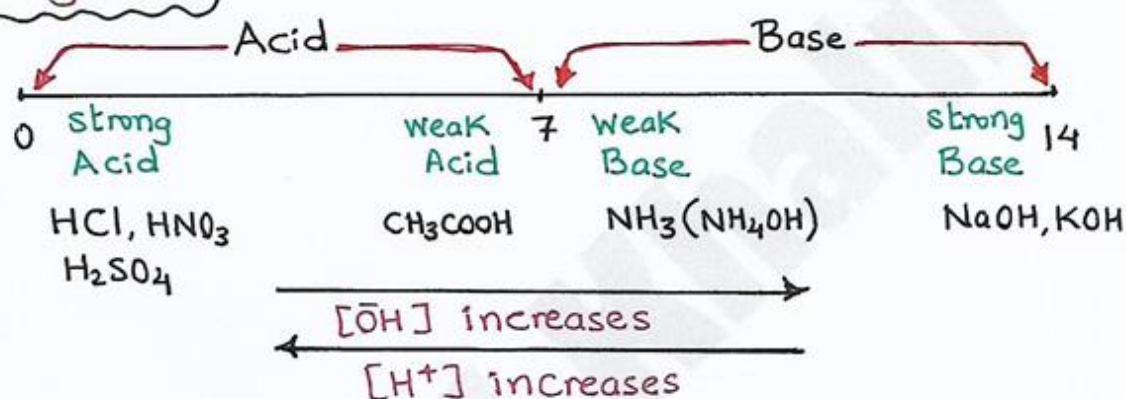 Acid Base
0 strong Acid weak Acid 7 weak Base strong Base 14
HCl, HNO₃ CH₃COOH NH₃(NH₄OH) NaOH, KOH
H₂SO₄
[ŌH] increases
[H⁺] increases